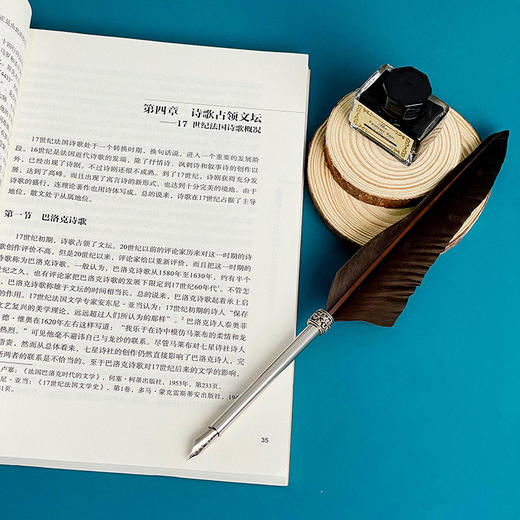 第四章 诗歌占领文坛
——17 世纪法国诗歌概况
17世纪法国诗歌处于一个转换时期。换句话说，进入一个重要的发展阶
段。16世纪是法国近代诗歌的发端，除了抒情诗、讽刺诗和叙事诗的创作以
外，已经出现了剧诗，不过诗剧还很不成熟。到了17世纪，诗剧获得充分发
展，达到了高峰。而且出现了寓言诗的新形式，也达到十分完美的境地。由于
诗歌的盛行，连理论著作也用诗体写成。总的说来，诗歌在17世纪占据了主导
地位，散文处于从属地位。
第一节 巴洛克诗歌
17世纪初期，诗歌占领了文坛。20世纪以前的评论家历来对这一时期的诗
歌创作评价不高，但是20世纪以来，评论家给以重新评价，而且把这一时期的
诗歌称为巴洛克诗歌。一般认为，巴洛克诗人从1580年至1630年，约有半个
世纪之久。也有评论家把巴洛克诗歌的发展下限定到17世纪60年代
不管怎
巴洛克诗歌称雄于文坛的时间相当长。总的说来，巴洛克诗歌起着承上启
的作用。17世纪法国文学专家安东尼·亚当认为：17世纪初期的诗人“保存
文艺复兴的美学理论，远远超过人们所认为的那样”。
巴洛克诗人泰奥菲
·德·维奥在1620年左右这样写道：“我乐于在诗中模仿马莱布的柔情和龙
热烈。”可见他毫不避讳自己与龙沙的联系。尽管马莱布对七星诗社诗人
指责，然而从总体看来，七星诗社的创作仍然直接影响了巴洛克诗人，完
两者的联系是不恰当的。至于巴洛克诗歌对17世纪后来的文学的影响，
卢塞：《法国巴洛克时代的文学》，何塞·柯蒂出版社，1953年，第233页。
尼·亚当：《17世纪法国文学史》，第1卷，多马·蒙克雷斯蒂安出版社，
35